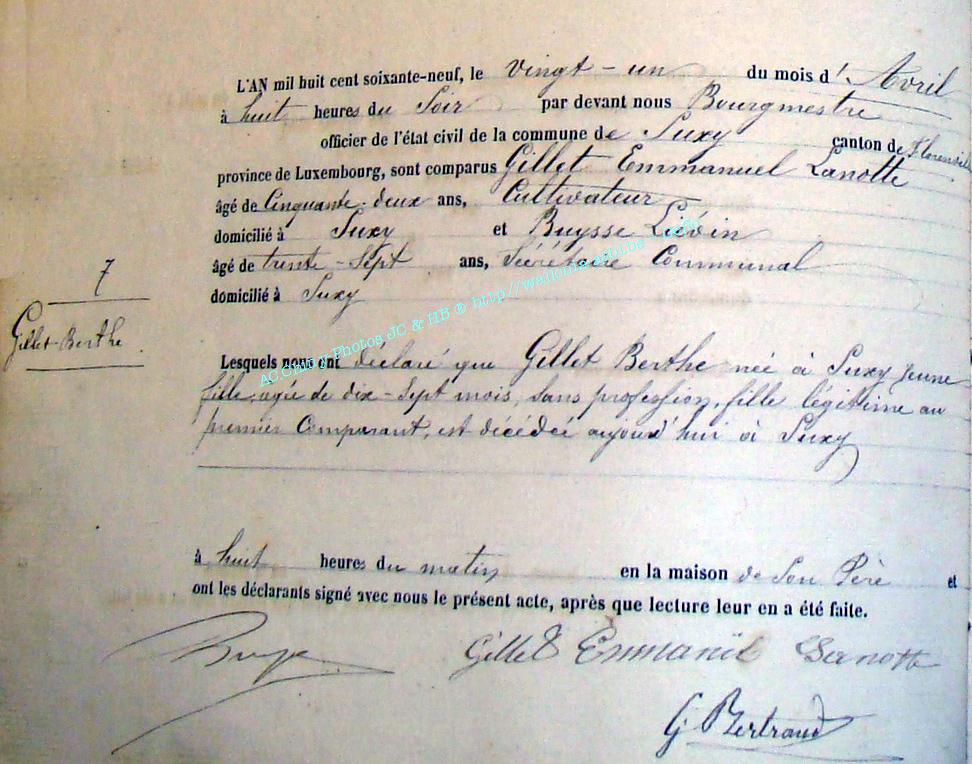 L'AN mil huit cent soixante-neuf, le vingt-un du mois d' Avril
à huit heures du Soir par devant nous Bourgmestre
officier de l'état civil de la commune de Suxy canton de Florenville
province de Luxembourg, sont comparus Gillet Emmanuel Lanotte
âgé de Cinquante-deux ans, Cultivateur
domicilié à Suxy et Buysse Liévin
âgé de trente-Sept ans, Sécrétaire Communal
domicilié à Suxy
7
Gillet Berthe
Lesquels nous ont déclaré que Gillet Berthe née à Suxy jeune
fille, agée de dix-Sept mois, sans profession, fille légitime au
premier Comparant, est décédée aujourd'hui à Suxy
à huit heures du matin en la maison de Son Père et
ont les déclarants signé avec nous le présent acte, après que lecture leur en a été faite.
Gillet
G Bertrand
AC Chiny Photos JC & HB ® http://